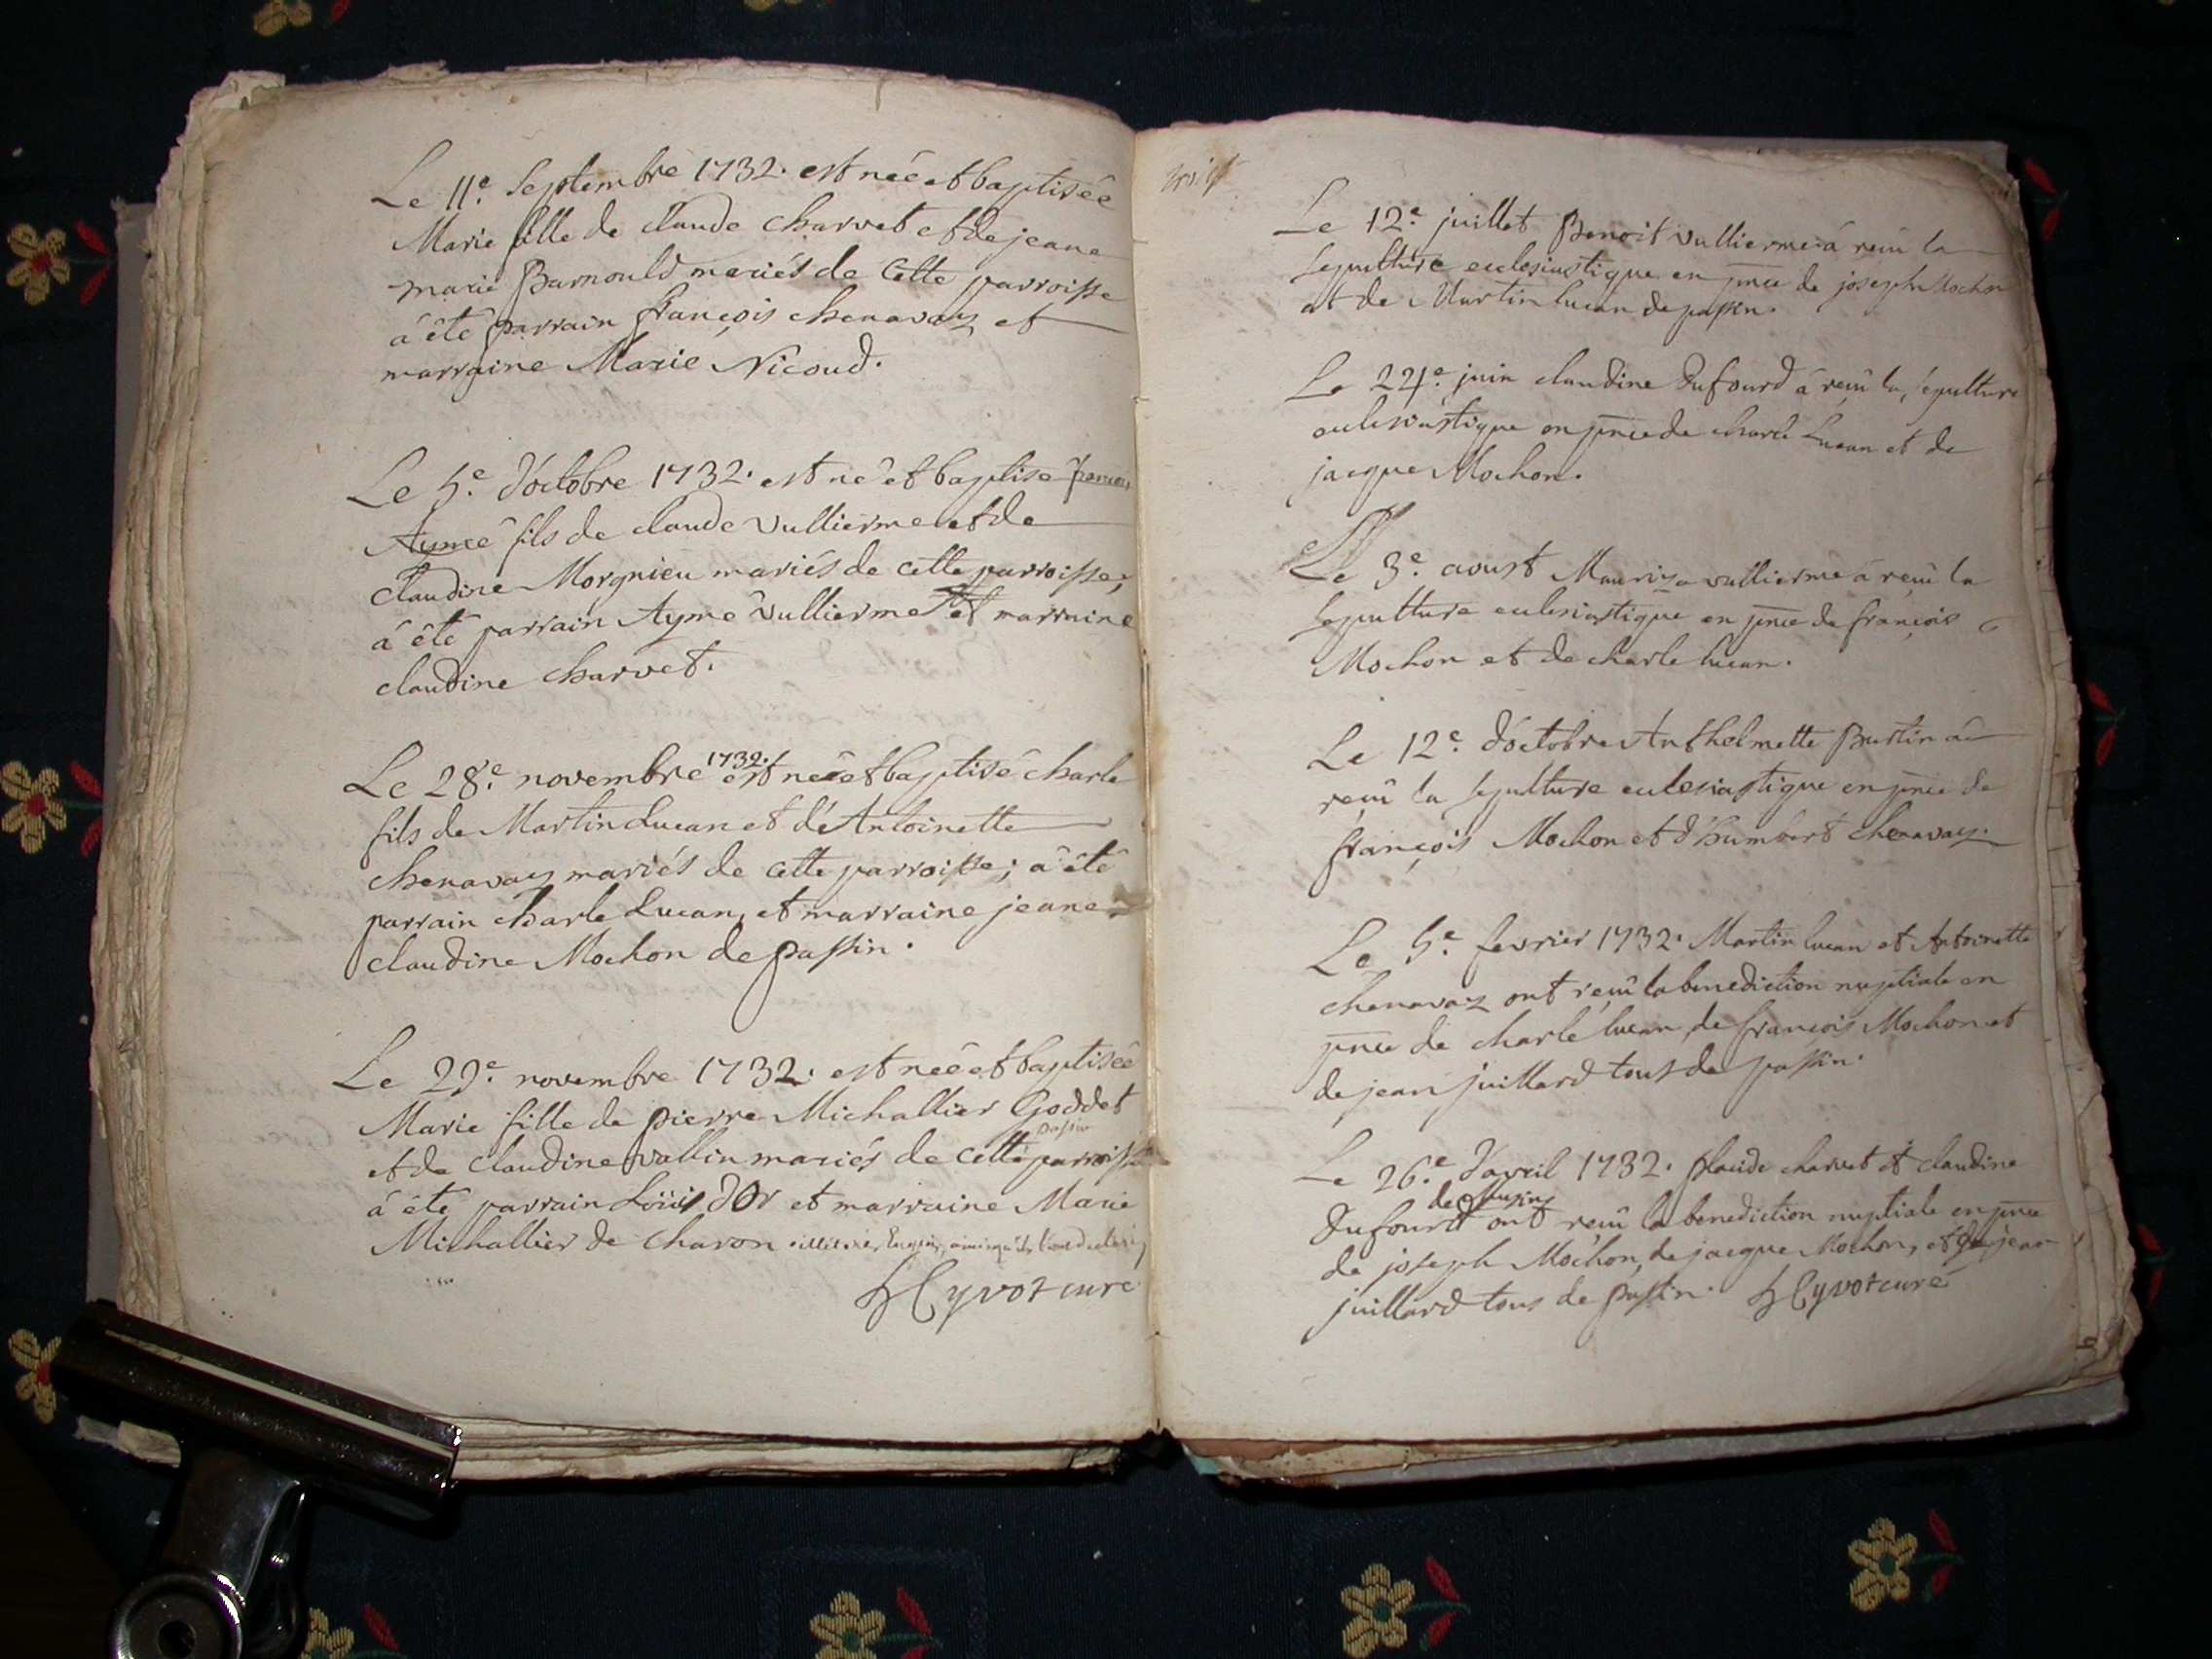 Le 11.e Septembre 1732. est neé et baptiseé
Marie fille de Claude Charvet et de jeane
marie Barnould mariés de Cette parroisse
á êté parrain françois chenavaz et
marraine Marie Nicoud.
Le 5.e d'octobre 1732. est né et baptisé
Aymé fils de claude vullierme et de
claudine Morgnieu mariés de cette parroisse;
á êté parrain Aymé vullierme et marraine
claudine charvet.
Le 28.e novembre 1732. est neé et baptisé charle
fils de Martin Lucan et d'Antoinette
chenavaz mariés de cette parroisse; á êté
parrain charle Lucan, et marraine jeane
claudine Mochon de passin.
Le 29.e novembre 1732. est neé et baptiseé
Marie fille de pierre Michallier Goddet
passin
et de claudine vallin mariés de cette parroisse
á êté parrain Loüis dOr et marraine Marie
Michallier de charon
Cyvot curé
Le 12.e juillet Benoit vullierme á reçû la
sepulture eclesiastique en pnce de joseph Mochon
et de Martin lucan de passin.
Le 24.e juin claudine Dufourd á reçû la sepulture
eclesiastique en pnce de charle Lucan et de
jacque Mochon.
Le 3.e aoust vullierme á reçû la
sepulture eclesiastique en pnce de françois
Mochon et de charle lucan.
Le 12.e d'octobre Anthelmette Burtin á
reçû la sepulture eclesiastique en pnce de
françois Mochon et d'humbert chenavaz.
Le 5.e fevrier 1732. Martin lucan et Antoinette
chenavaz ont reçû la benediction nuptiale en
pnce de charle lucan, de françois Mochon et
de jean juillard tous de passin.
Le 26.e d'avril 1732. charvet et claudine
Dufourd ont reçû la benediction nuptiale en pnce
de joseph Mochon, de jacque Mochon, et de jean
juillard tous de passin. Cyvot curé